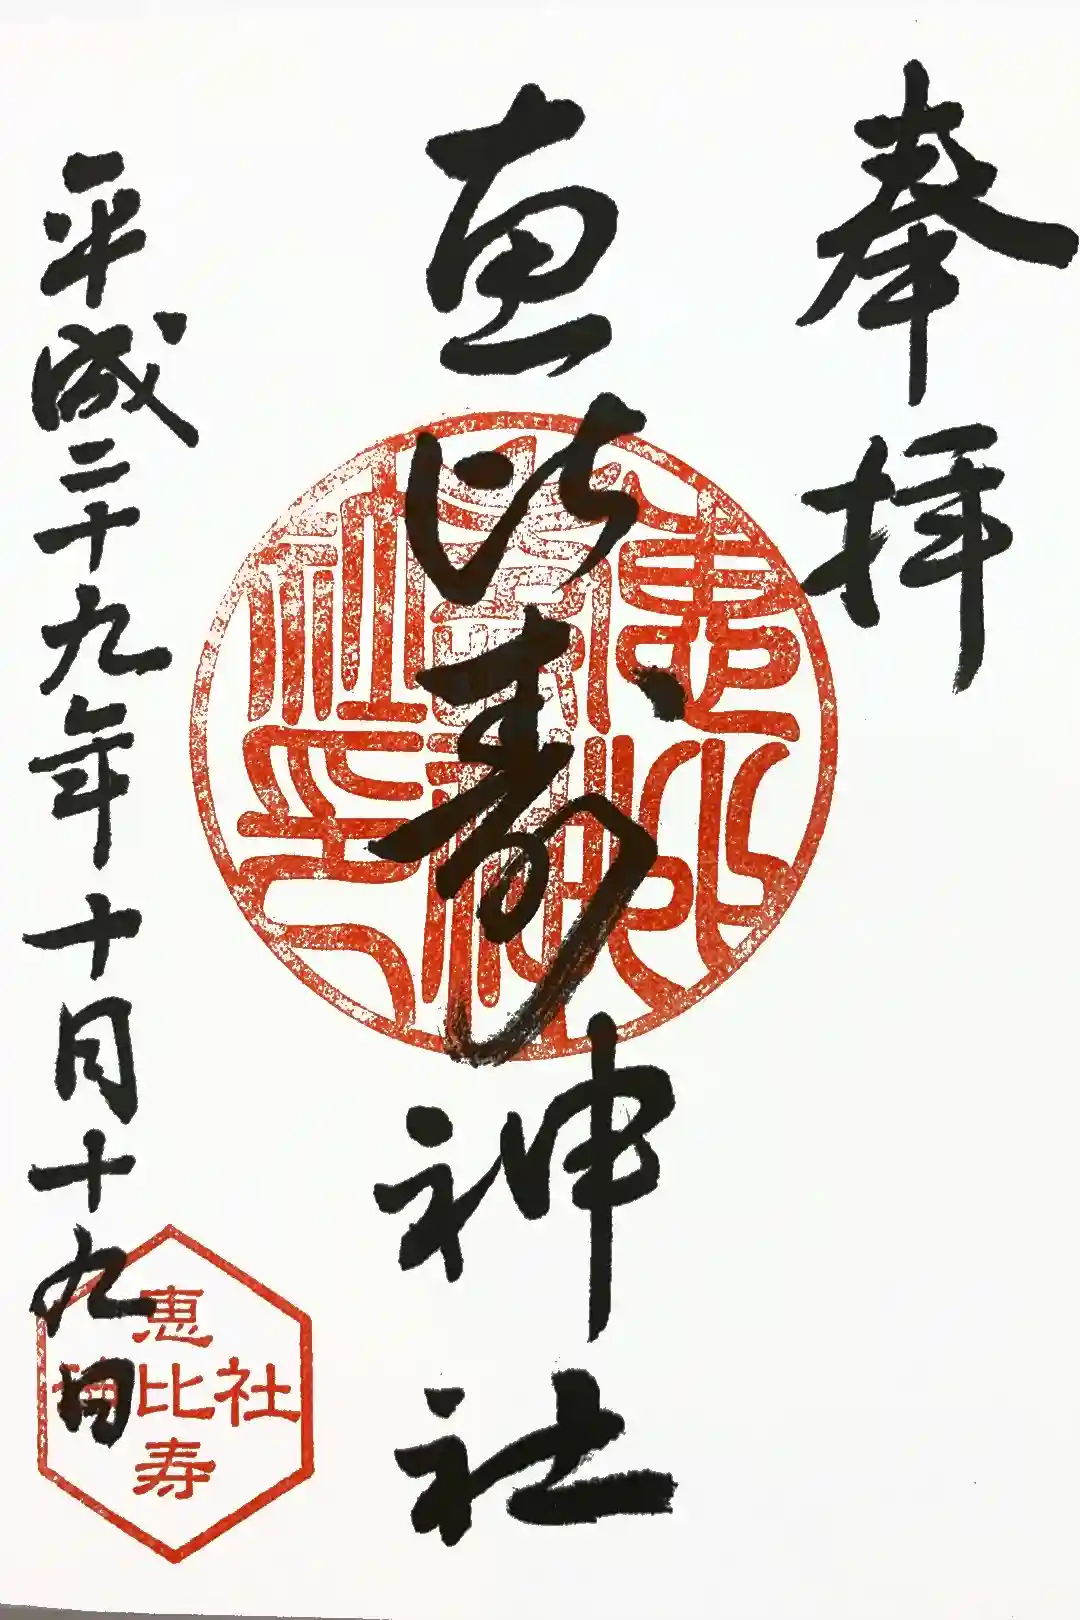 奉拝
恵比寿神社
平成二十九年十月十九日
恵比寿神社之印
恵
神比社
寿